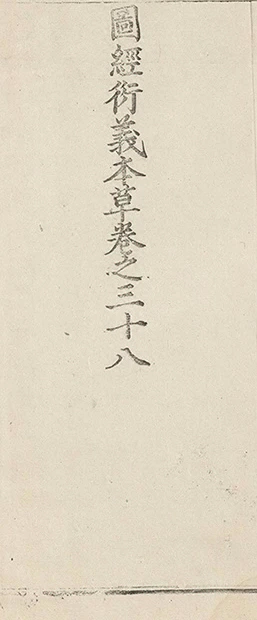 圖經衍義本草卷之三十八